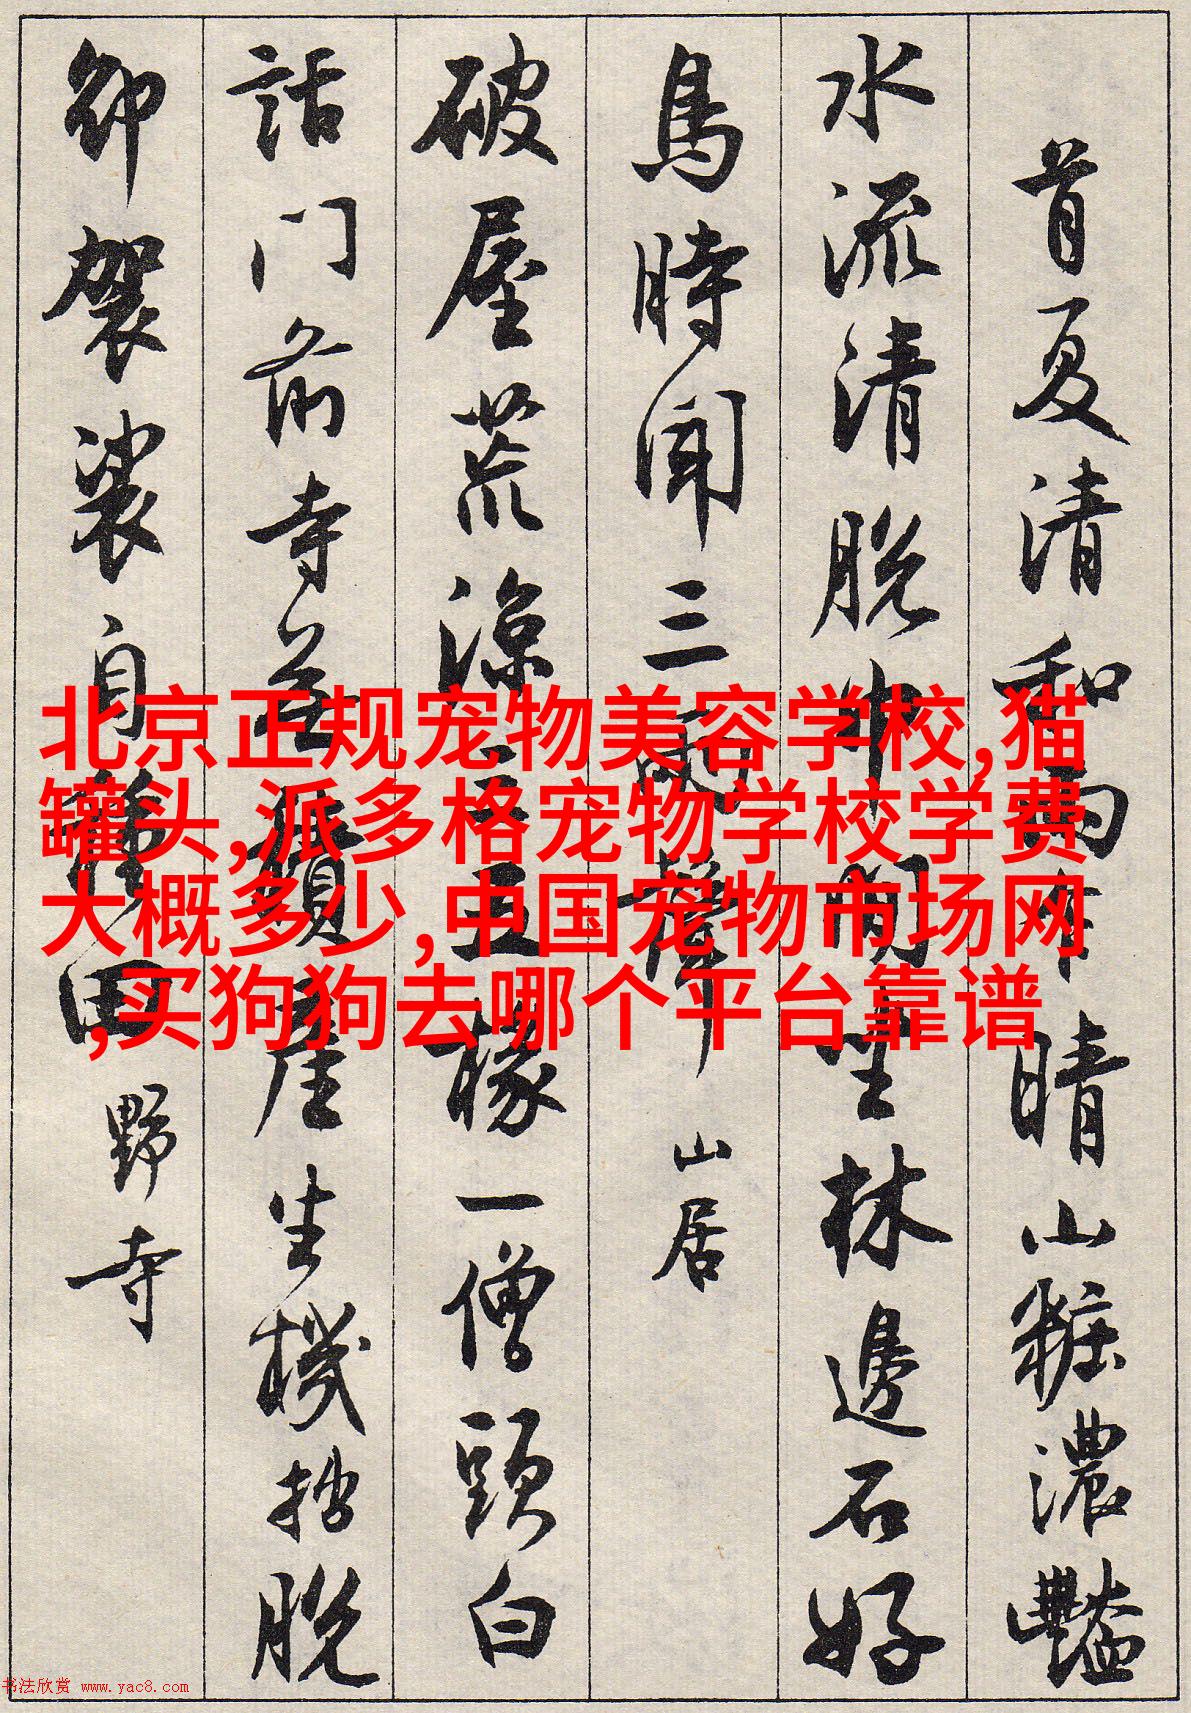 首夏清和雨乍晴山粧濃豔
水流清脱巾閒坐林邊石好
鳥時聞三兩聲 山居
破屋荒涼三五椽一僧頭白
話门前寺無積產生機拙脱
卸袈裟自種田 野寺
北京正规宠物美容学校,猫
罐头,派多格宠物学校学费
大概多少,中国宠物市场网
,买狗狗去哪个平台靠谱
书法欣赏 www.yac8.com